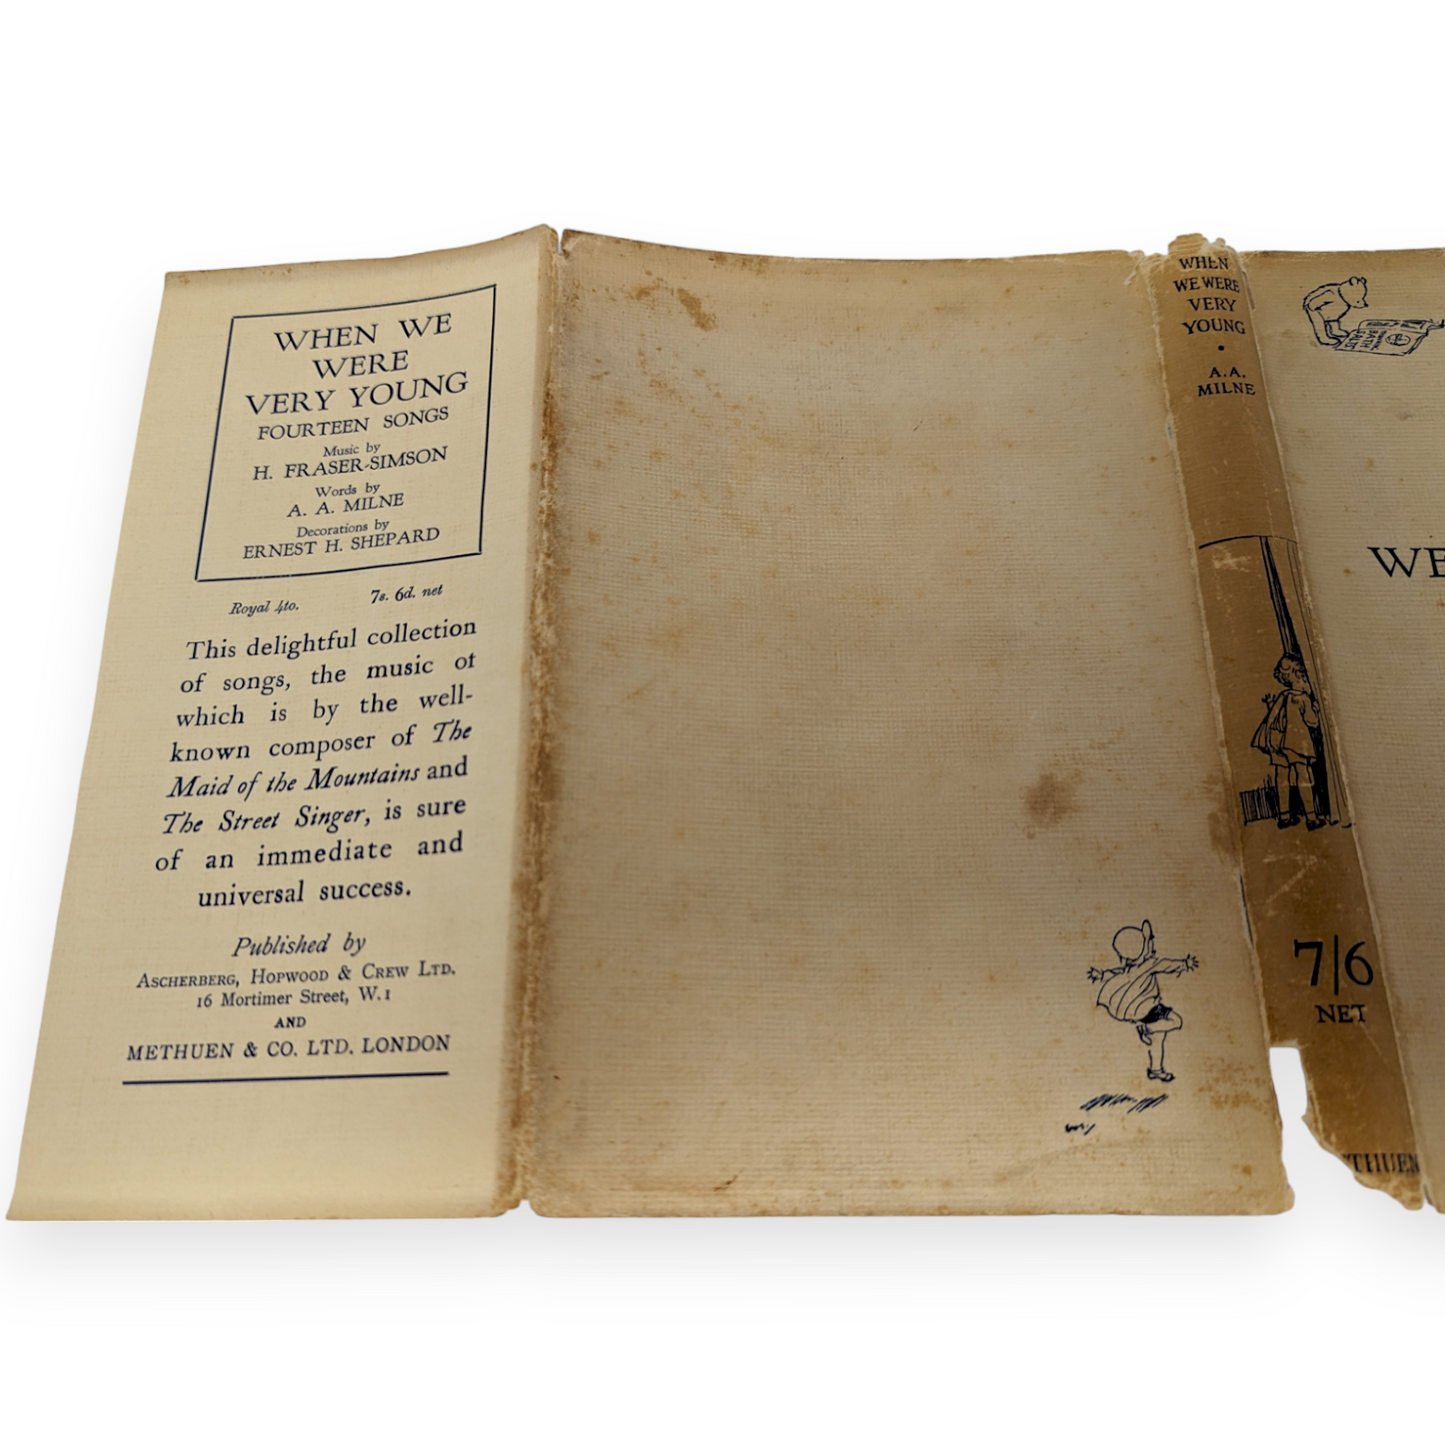 WHEN WE
WERE
VERY YOUNG
FOURTEEN SONGS
Music by
H. FRASER-SIMSON
Words by
A. A. MILNE
Decorations by
ERNEST H. SHEPARD
Royal 4to. 7s. 6d. net
This delightful collection
of songs, the music of
which is by the well-
known composer of The
Maid of the Mountains and
The Street Singer, is sure
of an immediate and
universal success.
Published by
ASCHERBERG, HOPWOOD & CREW LTD.
16 Mortimer Street, W.1
AND
METHUEN & CO. LTD. LONDON
WHEN
WE WERE
VERY
YOUNG
•
A.A.
MILNE
7/6
NET
THUEN
WE